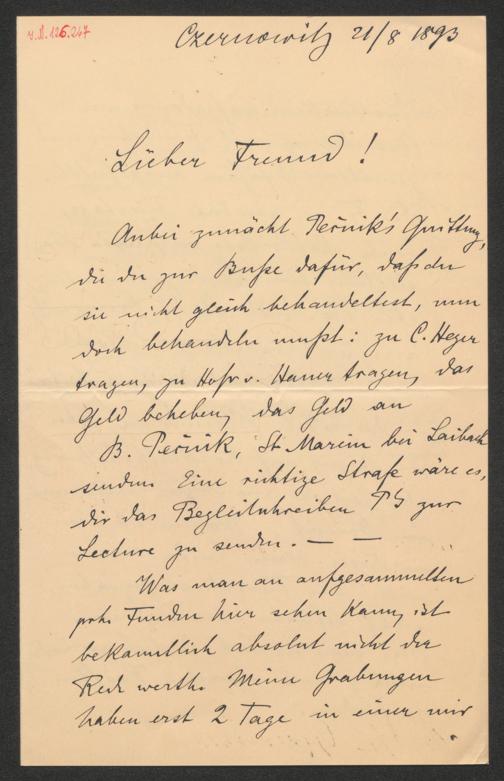 Y.N. 126.247
Czernowitz 21/8 1893
Lieber Freund!
Anbei zunächst Pečnik's Quittung,
die du zur Buße dafür, daß du
sie nicht gleich behandeltest, nun
doch behandeln mußt: zu C. Heger
tragen, zu Hofr v. Hauer tragen, das
Geld beheben, das Geld an
B. Pečnik, St. Marein bei Laibach
senden. Eine richtige Strafe wäre es,
dir das Begleitschreiben P's zur
Lecture zu senden. — —
Was man an aufgesammelten
präh. Funden hier sehen kann, ist
bekanntlich absolut nicht der
Rede werth. Meine Grabungen
haben erst 2 Tage in einer mir